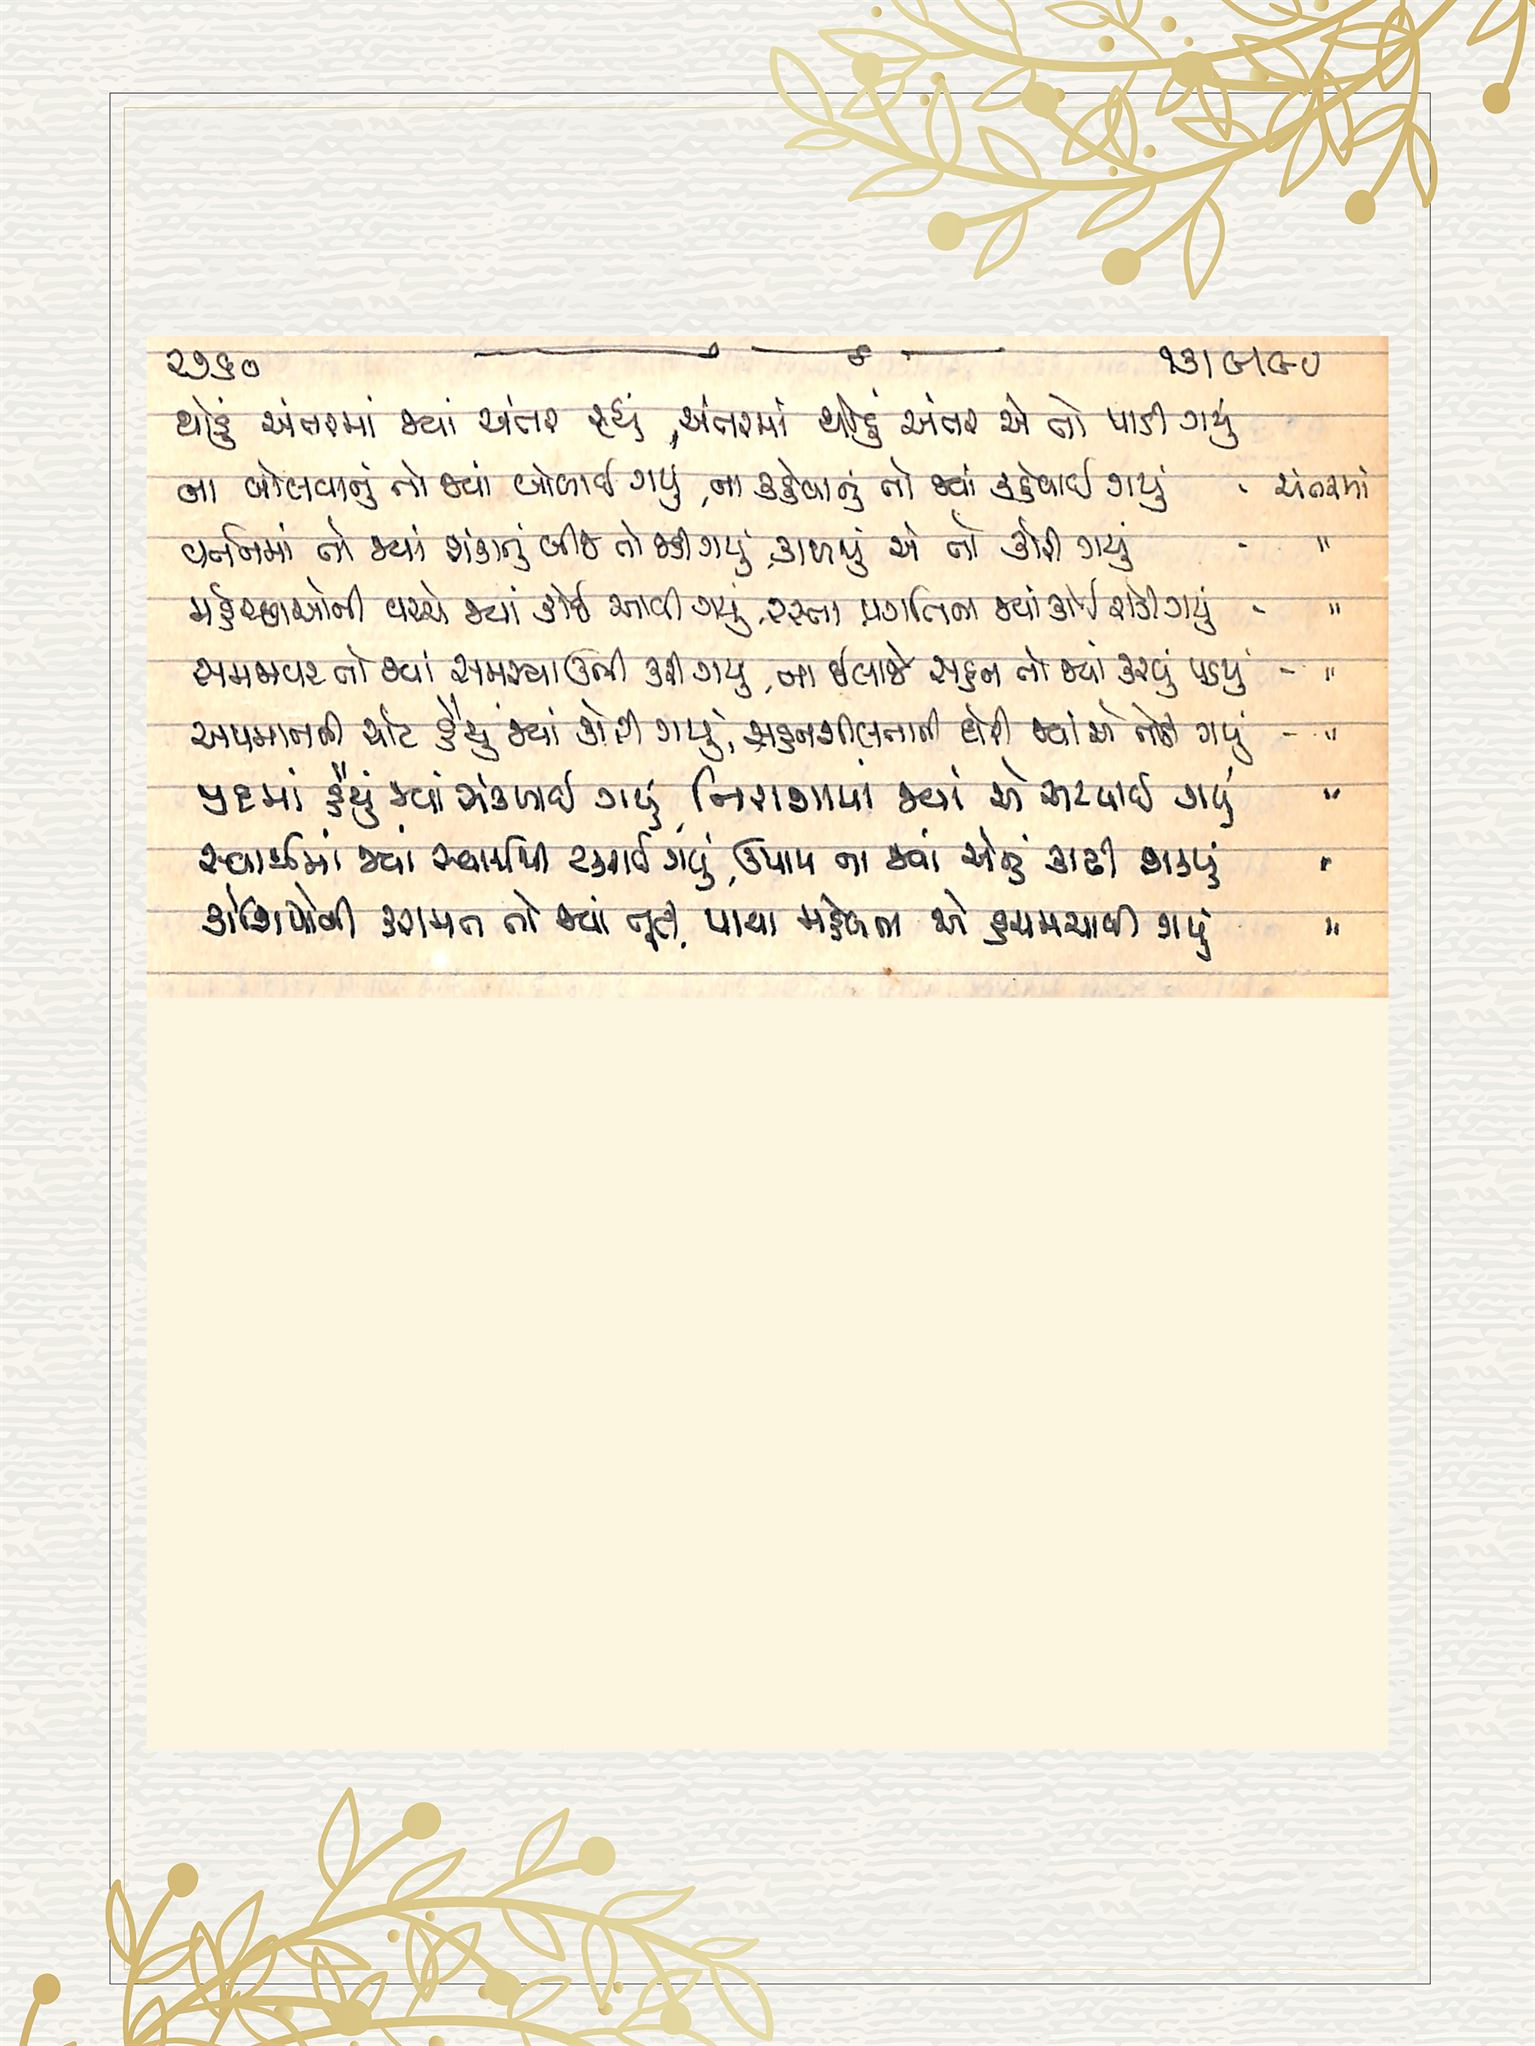 ૨૭૬૦ ૧૩/૯/૯૦
થોડું અંતરમાં જ્યાં અંતર રહ્યું, અંતરમાં થોડું અંતર એ તો પાડી ગયું
ના બોલવાનું તો જ્યાં બોલાઈ ગયું, ના કહેવાનું તો જ્યાં કહેવાઈ ગયું - અંતરમાં
વર્તનમાં તો જ્યાં શંકાનું બીજ તો જડી ગયું, કાળજું એ તો કોરી ગયું - "
મહેચ્છાઓની વચ્ચે જ્યાં કોઈ આવી ગયું, રસ્તા પ્રગતિના જ્યાં કોઈ રોકી ગયું - "
સમજવર તો જ્યાં સમસ્યા ઊભી કરી ગયું, ના ઈલાજે સહન તો જ્યાં કરવું પડયું - "
અપમાનની ચોટ હૈયું જ્યાં કોરી ગયું, સહનશીલતાની દોરી જ્યાં એ તોડી ગયું - "
હૈયું જ્યાં સંકળાઈ ગયું, નિરાશામાં જ્યાં એ અટવાઈ ગયું "
સ્વાર્થમાં જ્યાં સ્વાર્થથી ટકરાઈ ગયું, ઉપાય ના જ્યાં એનું કાઢી શક્યું "
કરામત તો જ્યાં તૂટી, પાયા મહેલના એ હચમચાવી ગયું "